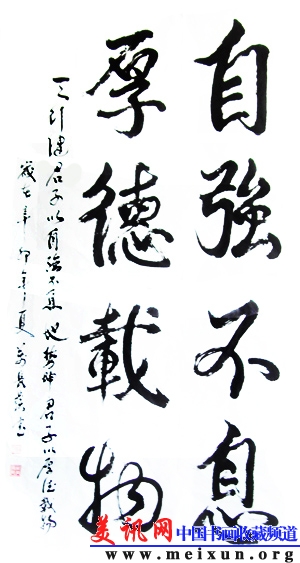 自強不息
厚德載物
天行健君子以自強不息地勢坤君子以厚德載物
歲在辛卯年夏
美讯网 中国书画收藏频道
www.meixun.org